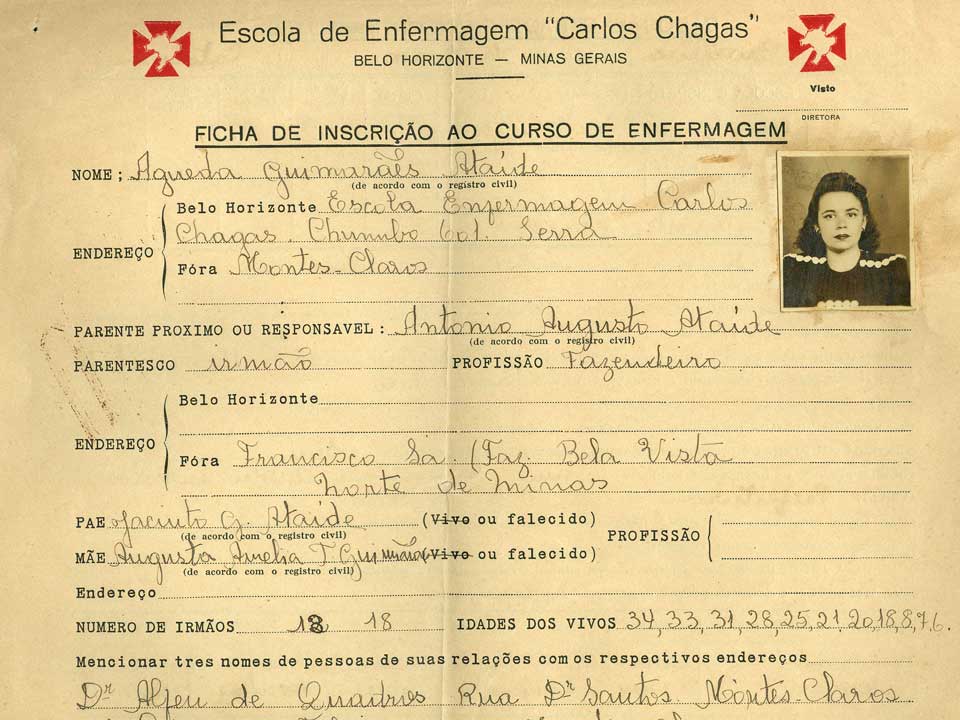 Escola de Enfermagem "Carlos Chagas"
BELO HORIZONTE — MINAS GERAIS
Visto
DIRETORA
FICHA DE INSCRIÇÃO AO CURSO DE ENFERMAGEM
NOME; Agueda Guimarães Ataíde
(de acordo com o registro civil)
Belo Horizonte Escola Enfermagem Carlos
Chagas. Chumbo Col. Serra
ENDEREÇO
Fóra Montes-Claros
PARENTE PROXIMO OU RESPONSAVEL: Antonio Augusto Ataíde
(de acordo com o registro civil)
PARENTESCO irmão PROFISSÃO Fazendeiro
Belo Horizonte
ENDEREÇO
Fóra Francisco Sa. (Faz. Bela Vista
Norte de Minas
PAE Jacinto G. Ataide (Vivo ou falecido)
(de acordo com o registro civil)
PROFISSÃO
MÃE Augusta Aurelia T. Guimarães (Vivo ou falecido)
(de acordo com o registro civil)
Endereço
NUMERO DE IRMÃOS 18 IDADES DOS VIVOS 34, 33, 31, 28, 25, 21, 20, 18, 8, 7, 6.
Mencionar tres nomes de pessoas de suas relações com os respectivos endereços
Dr Alfeu de Quadros Rua Dr Santos Montes-Claros